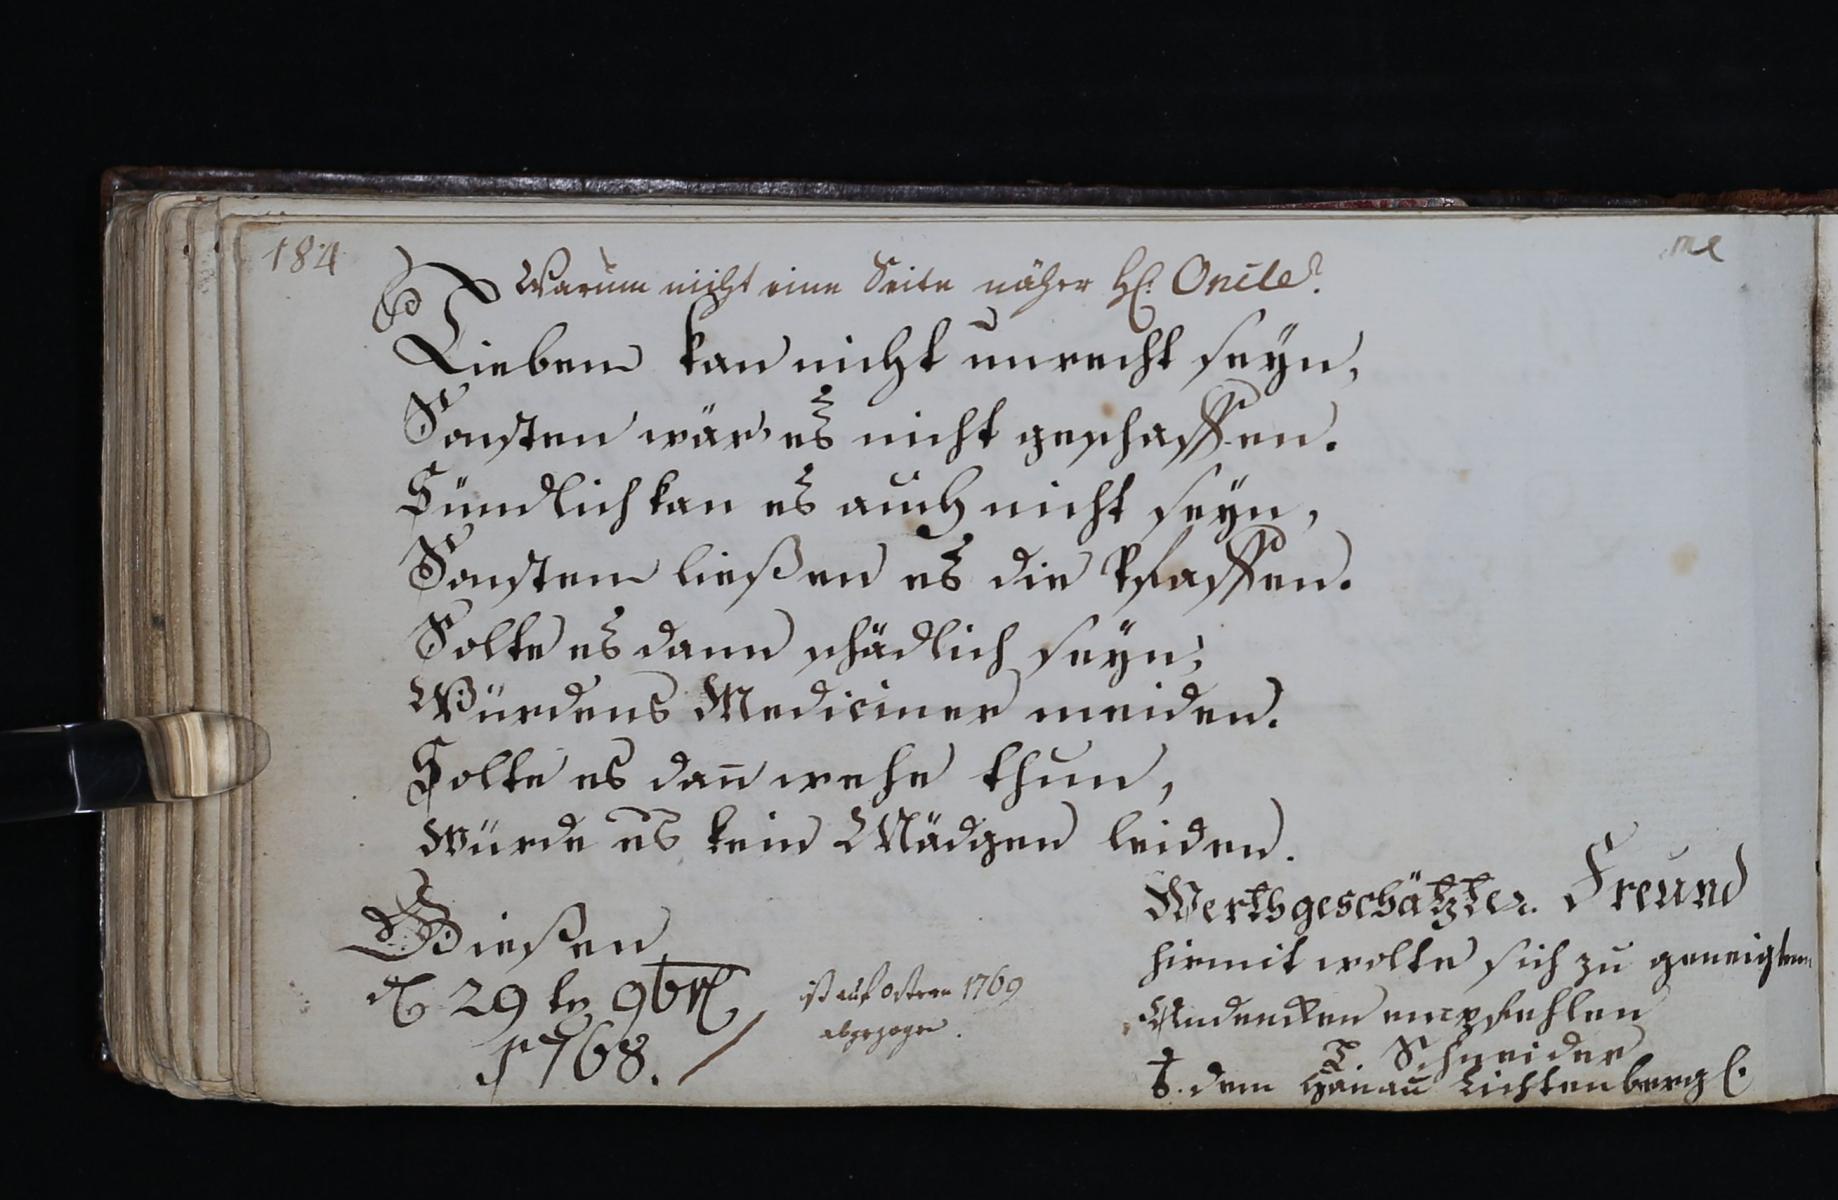 184
Warum nicht eine Seite näher H. Oncle?
Lieben kan nicht unrecht seyn,
Sonsten wär es nicht geschaffen.
Sündlich kan es auch nicht seyn,
Sonsten ließen es die Pfaffen.
Solte es dann schädlich seyn,
Würdens Mediciner meiden.
Solte es dañ wehe thun,
Würde es kein Mädgen leiden.
Gießen
29 9br
1768.
ist auf ostern 1769
abgezogen.
Werthgeschätzter Freund
hiemit wolte sich zu geneigtem
Andencken empfehlen
Schneider
dem Hanau Lichtenberg